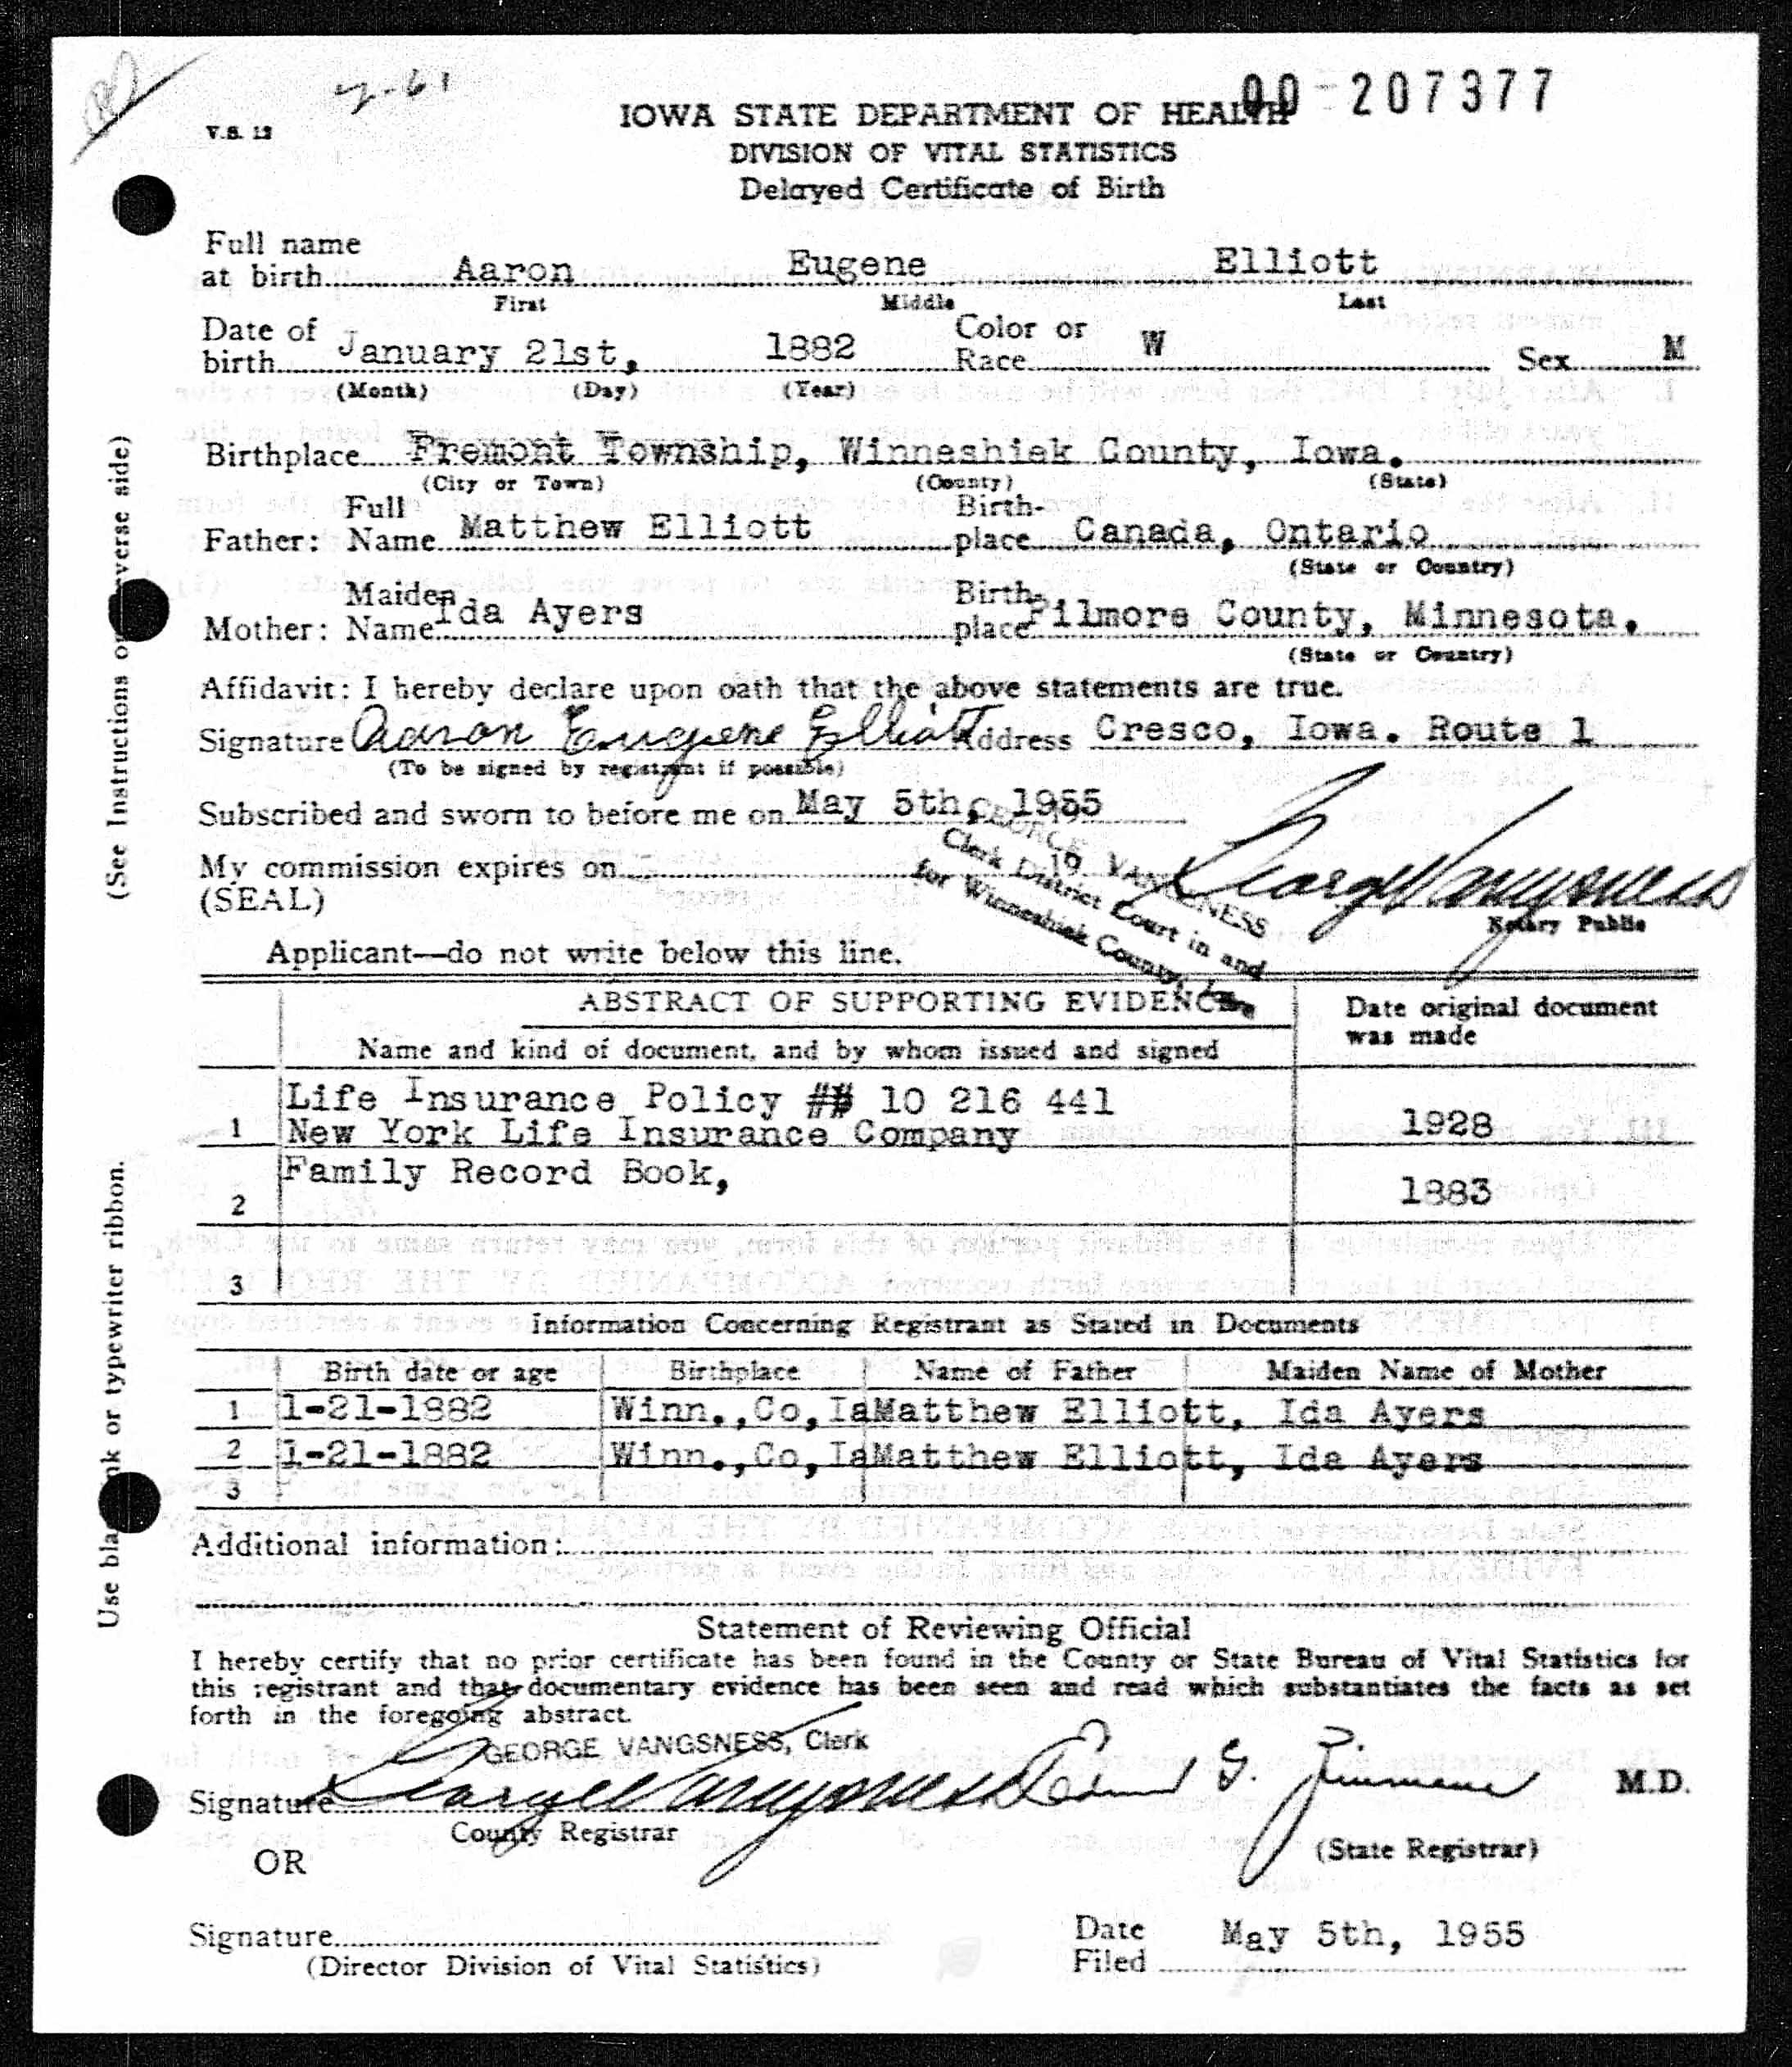 y-61
00-207377
V.S. 12
IOWA STATE DEPARTMENT OF HEALTH
DIVISION OF VITAL STATISTICS
Delayed Certificate of Birth
Full name
at birth Aaron Eugene Elliott
First Middle Last
Date of birth January 21st, 1882 Color or Race W Sex M
(Month) (Day) (Year)
Birthplace Fremont Township, Winneshiek County, Iowa.
(City or Town) (County) (State)
Father: Full Name Matthew Elliott Birth-place Canada, Ontario
(State or Country)
Mother: Maiden Name Ida Ayers Birth-place Filmore County, Minnesota.
(State or Country)
Affidavit: I hereby declare upon oath that the above statements are true.
Signature Aaron Eugene Elliott Address Cresco, Iowa. Route 1
(To be signed by registrant if possible)
Subscribed and sworn to before me on May 5th, 1955
My commission expires on 19
(SEAL)
GEORGE VANGSNESS
Clerk District Court in and
for Winneshiek County, Iowa
George Vangsness
Notary Public
Applicant—do not write below this line.
ABSTRACT OF SUPPORTING EVIDENCE
Name and kind of document, and by whom issued and signed
Date original document
was made
1 Life Insurance Policy ## 10 216 441
New York Life Insurance Company 1928
2 Family Record Book, 1883
3
Information Concerning Registrant as Stated in Documents
Birth date or age Birthplace Name of Father Maiden Name of Mother
1 1-21-1882 Winn.,Co,Ia Matthew Elliott, Ida Ayers
2 1-21-1882 Winn.,Co,Ia Matthew Elliott, Ida Ayers
3
Additional information:
Statement of Reviewing Official
I hereby certify that no prior certificate has been found in the County or State Bureau of Vital Statistics for
this registrant and that documentary evidence has been seen and read which substantiates the facts as set
forth in the foregoing abstract.
GEORGE VANGSNESS, Clerk
Signature George Vangsness Edmund G. Zimmerer M.D.
County Registrar (State Registrar)
OR
Signature
(Director Division of Vital Statistics)
Date Filed May 5th, 1955
(See Instructions on reverse side)
Use black ink or typewriter ribbon.